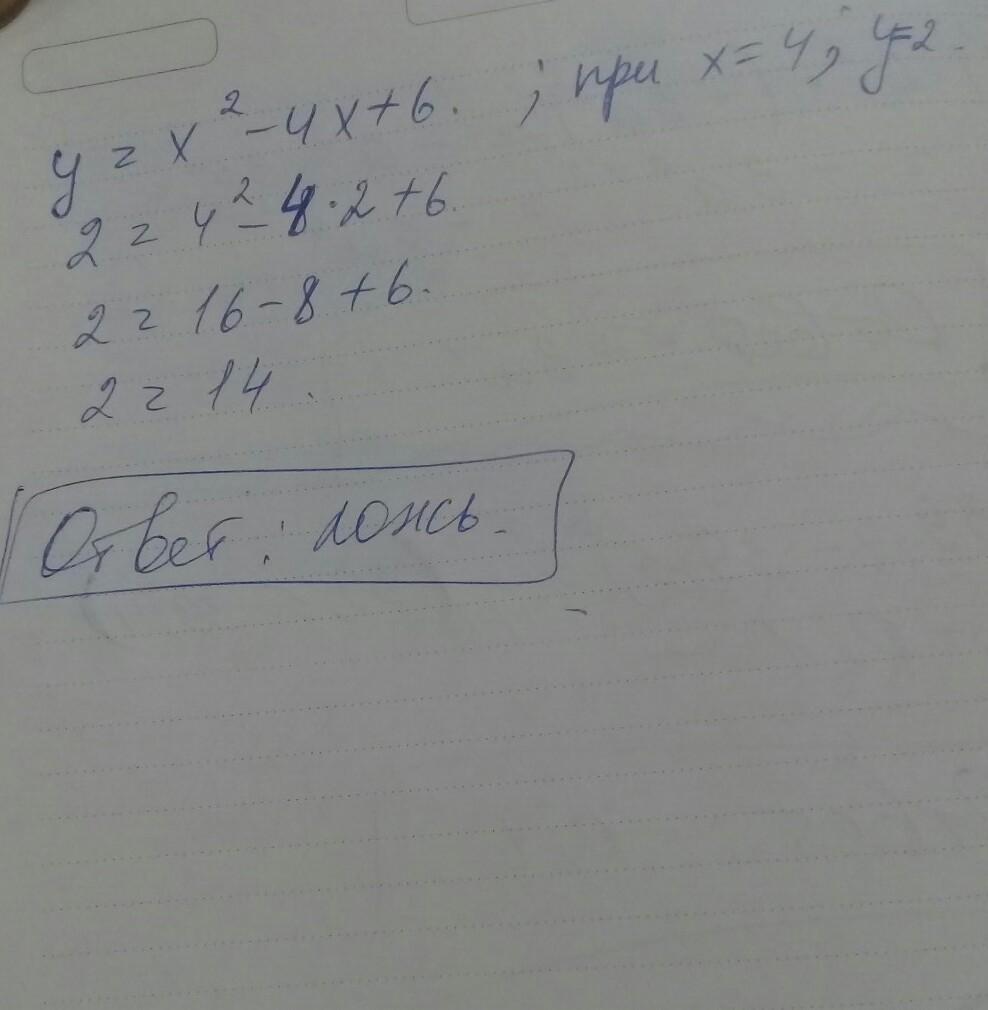 y = x² - 4x + 6. ; при x = 4, y = 2.
2 = 4² - 4 · 2 + 6.
2 = 16 - 8 + 6.
2 = 14.
Ответ: ложь.